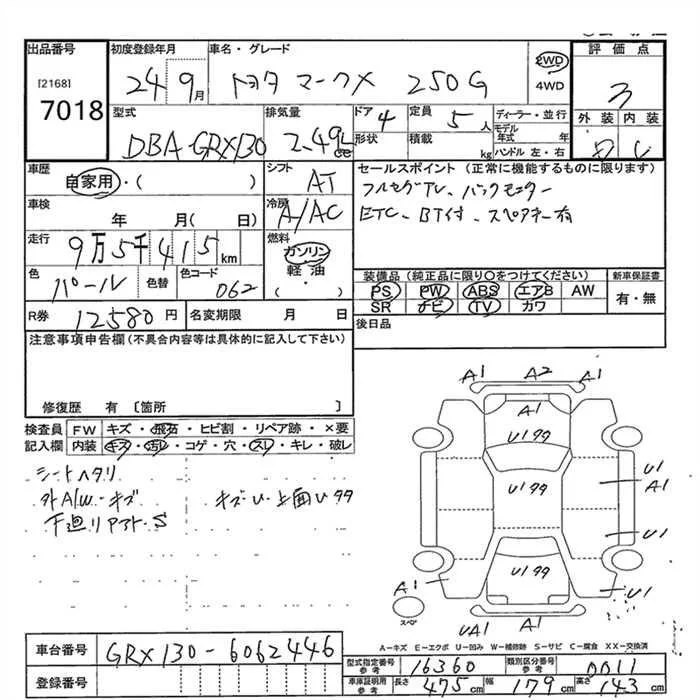 出品番号 初度登録年月 車名・グレード 2WD 4WD 評価点
[2168] 7018 24 9月 トヨタ マークX 250G 3
型式 排気量 ドア 定員 ディーラー・並行 外装 内装
DBA-GRX130 2.49L cc 4 5人 モデル年式 年
形状 積載 kg ハンドル 左・右
車歴 シフト セールスポイント (正常に機能するものに限ります)
自家用・( ) AT フルセグTV、バックモニター
車検 冷房 ETC、BT付、スペアキー有
年 月( 日) A/AC
走行 燃料
9万5千415km ガソリン
軽油
( ・ )
色 色替 色コード 装備品(純正品に限り○をつけてください) 新車保証書
パール 062 PS PW ABS エアB AW 有・無
R券 12580円 名変期限 月 日 SR ナビ TV カワ
後日品
注意事項申告欄(不具合内容等は具体的に記入して下さい)
修復歴 有 [箇所 ]
検査員 FW キズ・飛石・ヒビ割・リペア跡・×要
記入欄 内装 キズ・汚れ・コゲ・穴・スレ・キレ・破レ
シートヘタリ
外A/W・キズ キズU・上面Uタタ
下廻リ S
A1 A2 A1
A1
U1タタ
U1タタ
U1
A1
U1
U1タタ
A1 U1
スペア
UA1 A1
A-キズ E-エクボ U-凹み W-補修跡 S-サビ C-腐食 XX-交換済
車台番号 GRX130-6062446
登録番号
型式指定番号 参考 16360 類別区分番号 参考 0011
車庫証明用 参考 長さ 475cm 幅 179cm 高さ 143cm